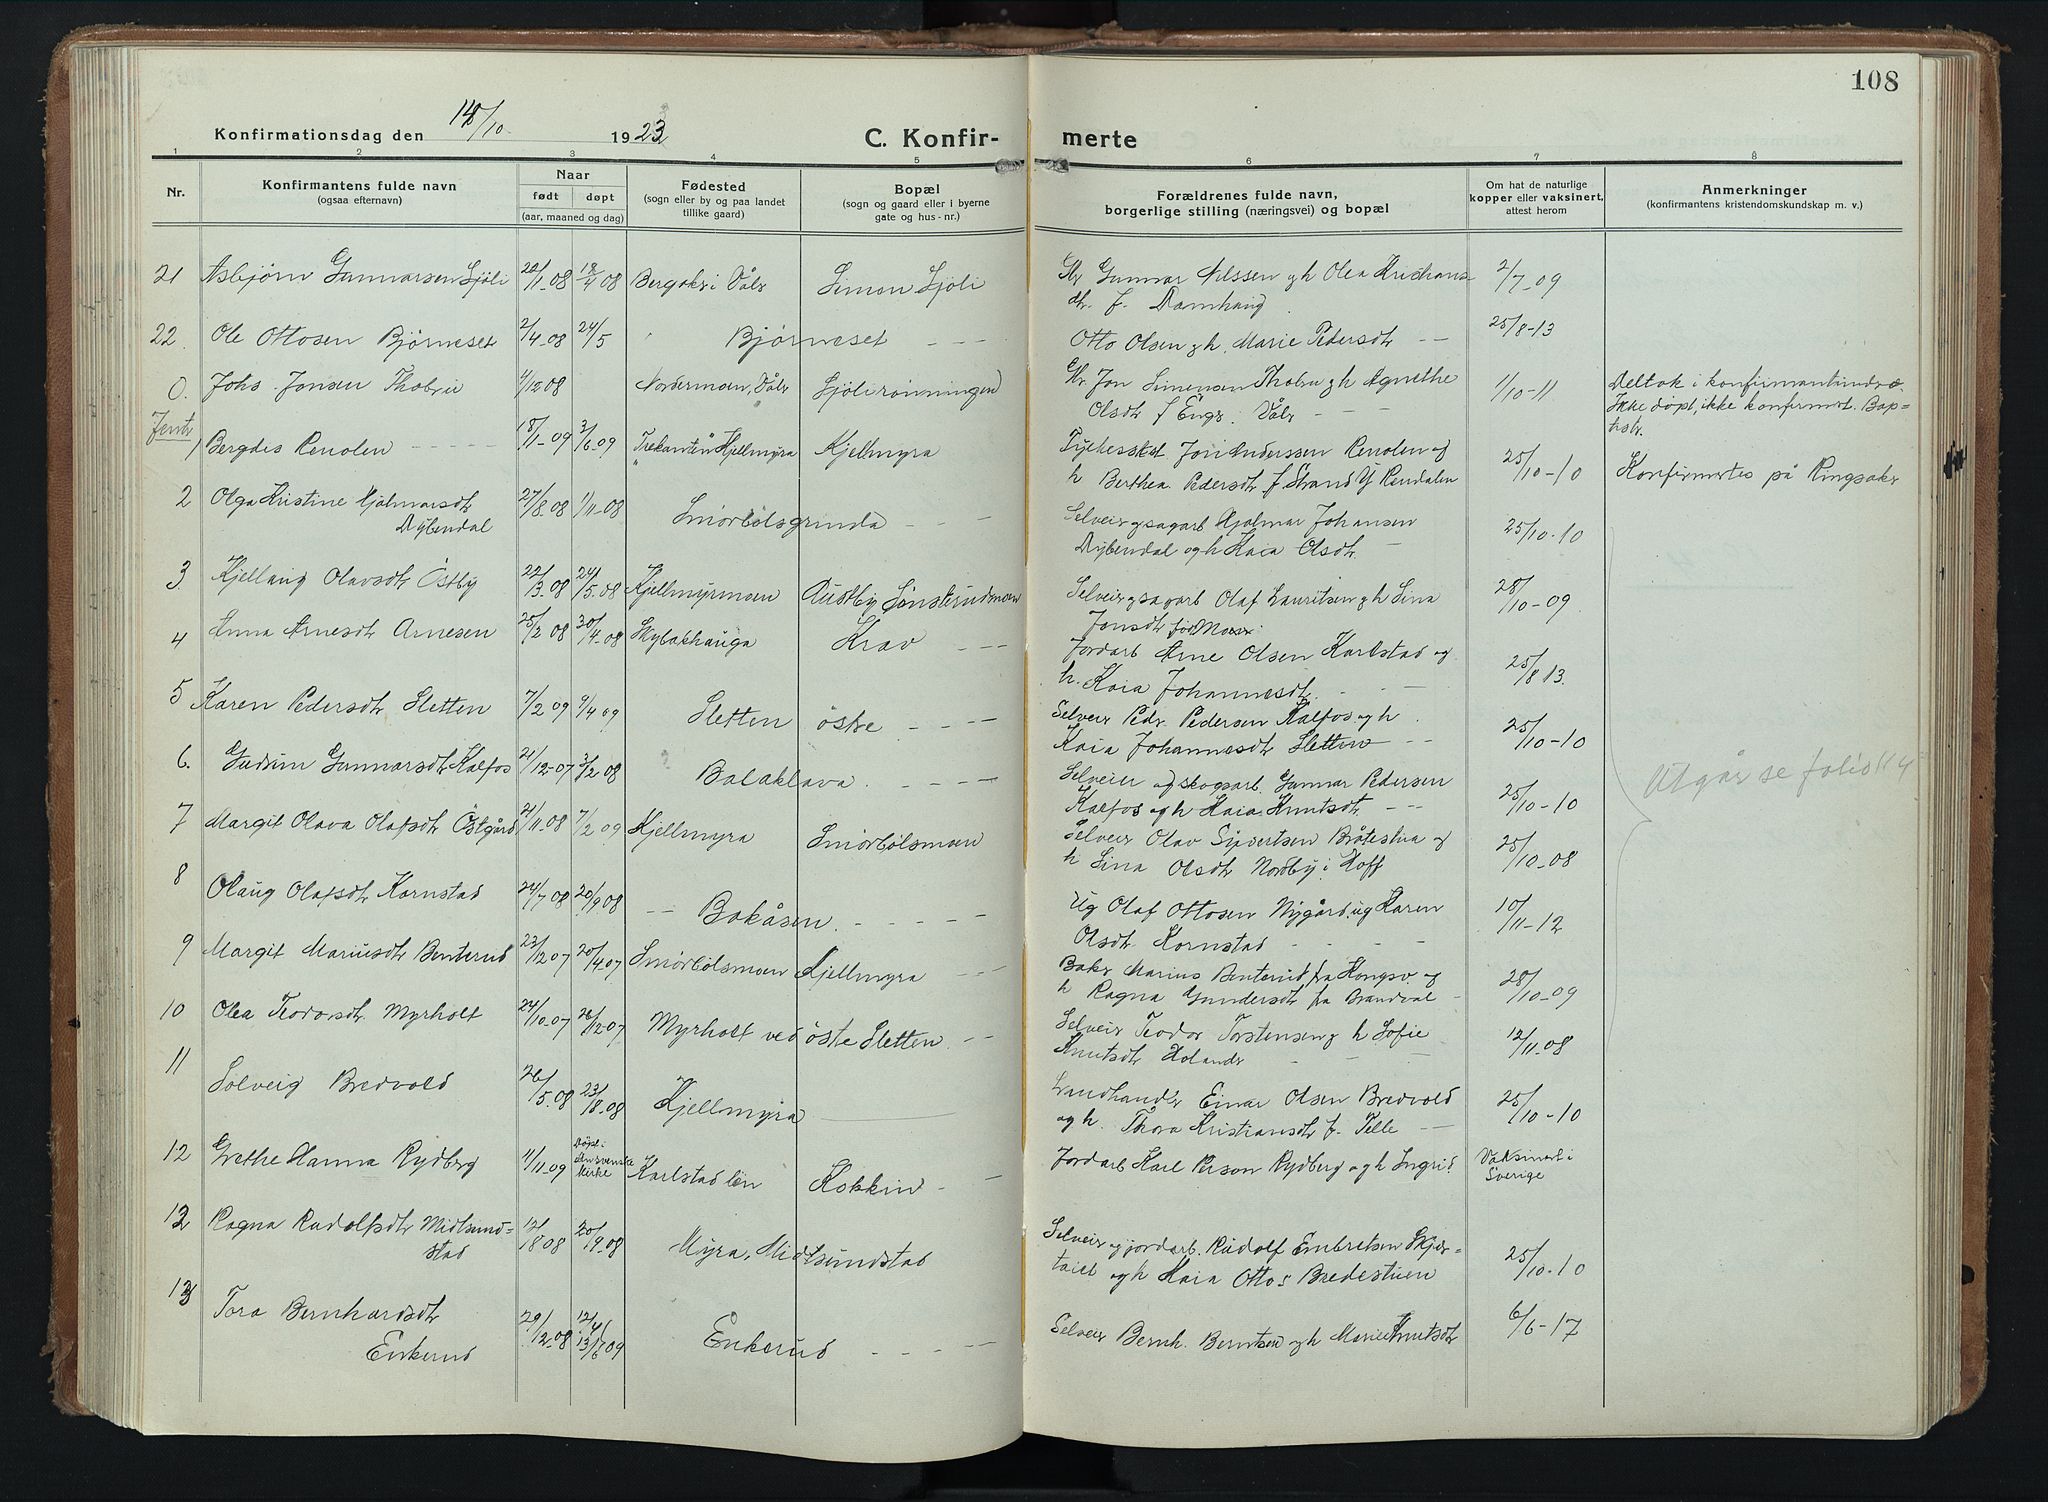 108
Konfirmationsdag den 14/10 1923
C. Konfir- merte
1 2 3 4 5 6 7 8
Nr.
Konfirmantens fulde navn
(ogsaa efternavn)
Naar
født døpt
(aar, maaned og dag)
Fødested
(sogn eller by og paa landet
tillike gaard)
Bopæl
(sogn og gaard eller i byerne
gate og hus-nr.)
Forældrenes fulde navn,
borgerlige stilling (næringsvei) og bopæl
Om hat de naturlige
kopper eller vaksinert,
attest herom
Anmerkninger
(konfirmantens kristendomskundskap m. v.)
21 Asbjørn Gunnarsen Sjøli 20/1 08 18/4 08 i Våler Simen Sjøli Gunnar Nilssen og h Olea Kristians- 2/7-09
dtr. f. Damhaug
22. Ole Ottosen Bjørneset 2/4-08 24/5 Bjørneset - - - Otto Olsen og h. Marie Pedersdtr - - 25/8-13
0. Johs. Jonsen Thobru 4/12 08 Nordermoen, Våler Sjølirønningen Jon Simensen Thobru og h Agnethe 1/10-11 Deltok i konfirmantundv.
Olsdtr f Enger i Våler - - - Ikke døpt, ikke konfirmert. Bap-
tist.
Jenter
1 Bergdis Renolen - - - 18/1-09 3/6 09 Trekanten Kjellmyra Kjellmyra Jon Anderssen Renolen og 25/10-10 Konfirmertes på Ringsaker
h Berthea Pedersdtr f Strand Y Rendalen
2 Olga Kristine Hjalmarsdtr 27/8-08 1/11-08 Smørbølsgrinda - - - Selveier og sagarb Hjalmar Johansen 25/10-10
Dybendal Dybendal og h Kaia Olsdtr.
3. Kjellaug Olavsdtr Østby 22/3 08 24/5-08 Kjellmyrmoen Austby Sønsterudmoen Selveier og sagarb Olaf Lauritsen og h Lina 28/10-09
Jonsdtr
4 Anna Arnesdtr Arnesen 25/2 08 30/4-08 Skybakhauga Krav - - - Jordarb Arne Olsen Karlstad og 25/8 13.
h. Kaia Johannesdtr. - - -
5 Karen Pedersdtr Sletten 7/2 09 9/4 09 Sletten østre - - - Selveier Peder Pedersen Kalfos og h 25/10-10
Kaia Johannesdtr Sletten - -
6. Gudrun Gunnarsdtr Kalfos 21/12-07 3/2 08 Balaklava. - - - Selveier og skogsarb. Gunnar Pedersen 25/10-10
Kalfos og h Kaia Knutsdtr - -
Utgår se folio 114
7 Margit Olava Olafsdtr Østgård 21/11-08 7/2 09 Kjellmyra Smørbølsmoen Selveier Olav Sivertsen Bråtestua og 25/10-08
h Lina Olsdtr Nordby i Hoff
8 Olaug Olafsdtr Kornstad 24/7-08 20/9 08 - - Bakåsen. - - - Ug Olaf Ottosen Nygård. ug Karen 10/11-12
Olsdtr Kornstad - - -
9 Margit Mariusdtr Benterud 23/12 07 20/4 07 Smørbølsmoen Kjellmyra - - - Baker Marius Benterud, fra Kongsv. og 28/10-09
h Ragna Gundersdtr fra Brandval -
10 Olea Teodorsdtr. Myrholt 24/10-07 26/12-07 Myrholt ved østre Sletten. - - Selveier Teodor Torstensen og h Sofie 12/11-08
Knutsdtr Holander - - -
11 Solveig Bredvold 26/5-08 23/18-08 Kjellmyra Landhandler Einar Olsen Bredvold 25/10-10
og h. Thora Kristiansdtr f. Pelle - -
12 Grethe Hanna Rydberg 4/11-09 Døpt i den svenske kirke Karlstad len Kokkin - - Jordarb Karl Person Rydberg og h Ingrid Vaksinert i
Sverige
12 Ragna Rudolfsdtr Midtsund- 12/18 08 20/19-08 Myra, Midtsundstad Selveier og jordarb. Rudolf Embretsen Skjær- 25/10-10
stad og h Kaia Ottos Bredestuen
13 Tora Bernhardsdtr 29/12-08 12/4 13/6 09 Enkerud - - - Selveier Bernh. Berntsen og h Marie Knutsdtr 6/6-17
Enkerud